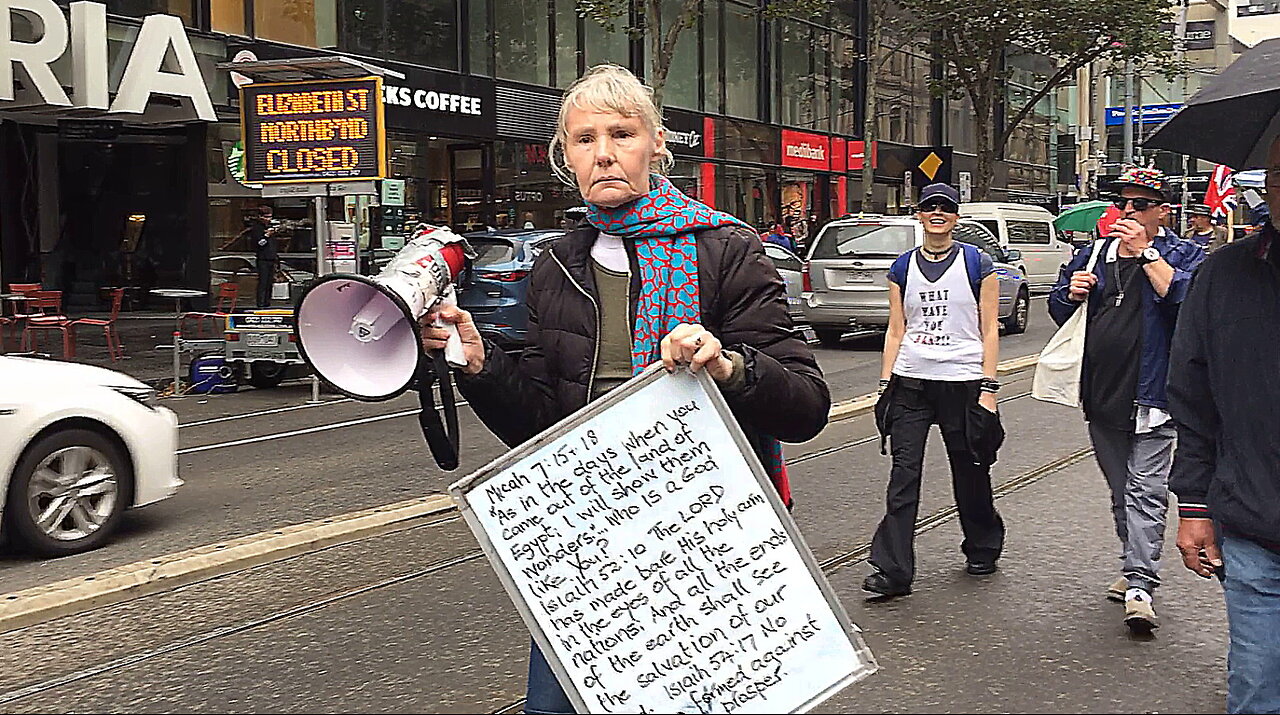 RIA
ELIZABETH ST
NORTHB'ND
CLOSED
KS COFFEE
medibank
OPTUS
WHAT
HAVE
YOU
Micah 7:15+18
"As in the days when you
came out of the land of
Egypt, I will show them
wonders." Who is a God
like You?
Isiaih 52:10 The LORD
has made bare His holy arm
in the eyes of all the
nations! And all the ends
of the earth shall see
the salvation of our
Isiaih 54:17 No
formed against
prosper.